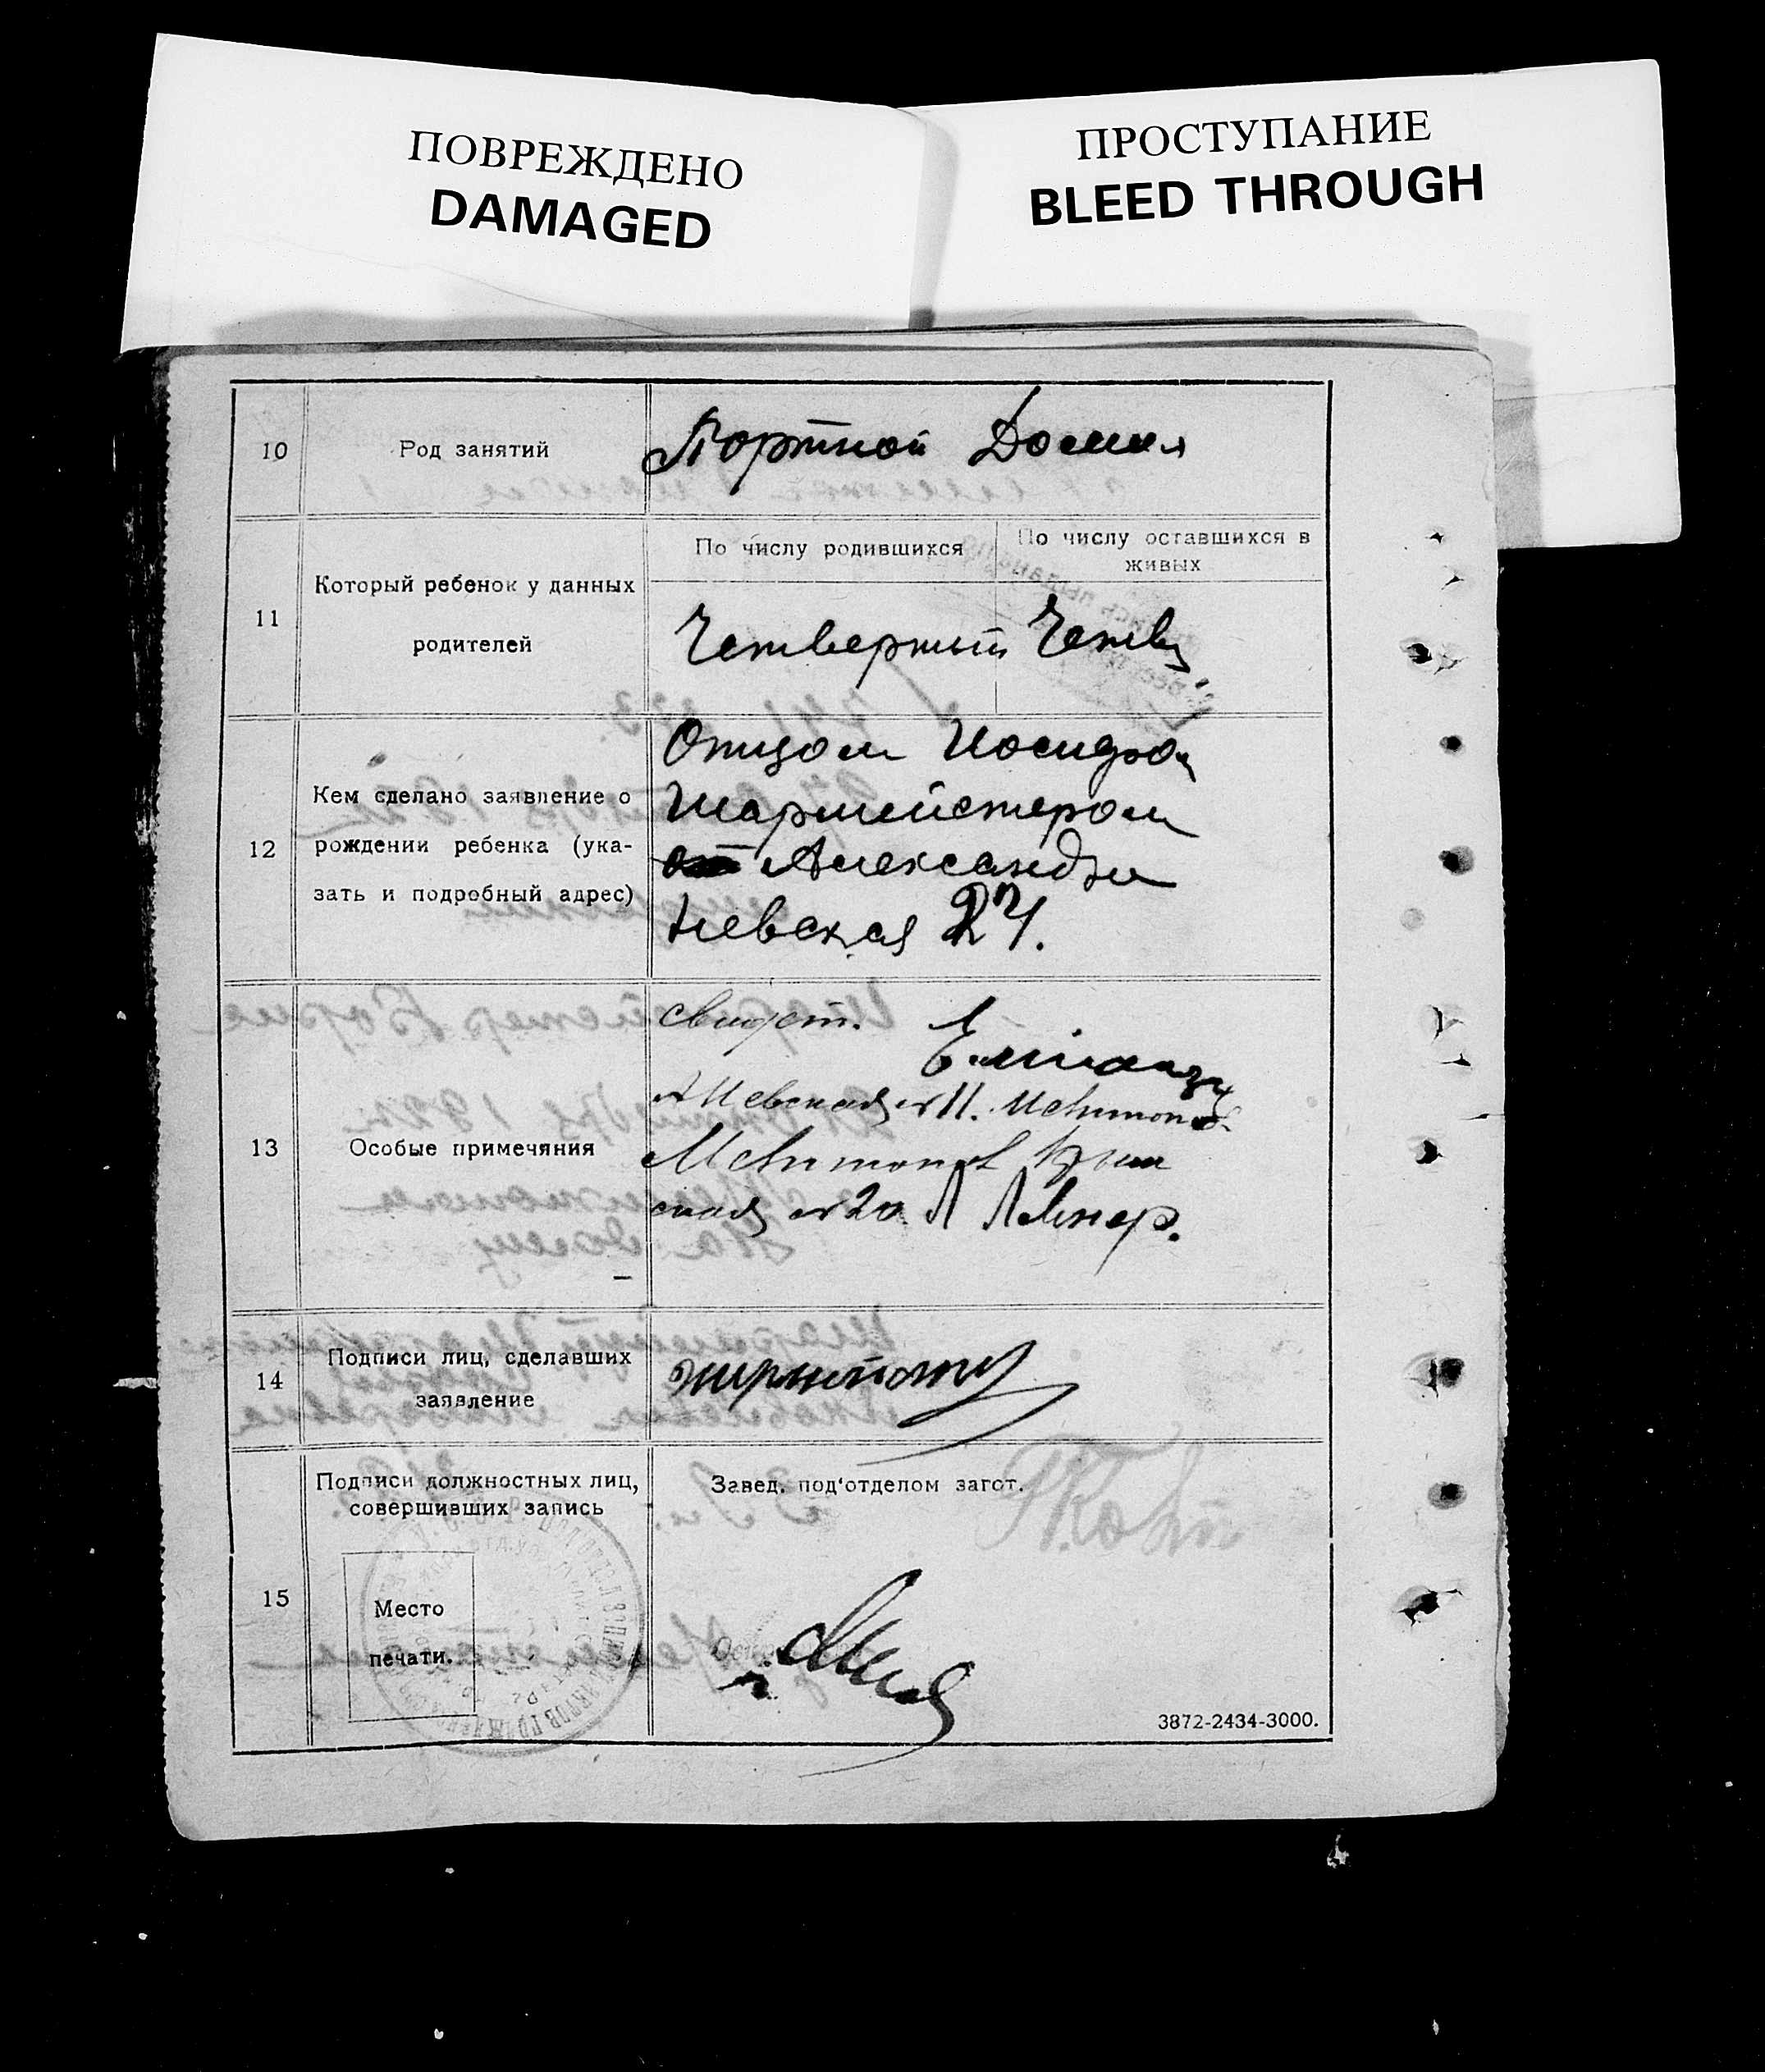 ПОВРЕЖДЕНО
DAMAGED
ПРОСТУПАНИЕ
BLEED THROUGH
10
Род занятий
Портной Домия
11
Который ребенок у данных
родителей
По числу родившихся
По числу оставшихся в
живых
Четвертый Четв
12
Кем сделано заявление о
рождении ребенка (ука-
зать и подробный адрес)
Отцом Иосифом
Шармейстером
Александр
Невская 27.
13
Особые примечяния
свидет.
А Невская № 11. Мелитополь
Мелитополь Крым
ская № 20 Л
14
Подписи лиц, сделавших
заявление
15
Подписи должностных лиц,
совершивших запись
Место
печати.
Завед. под'отделом загот.
3872-2434-3000.